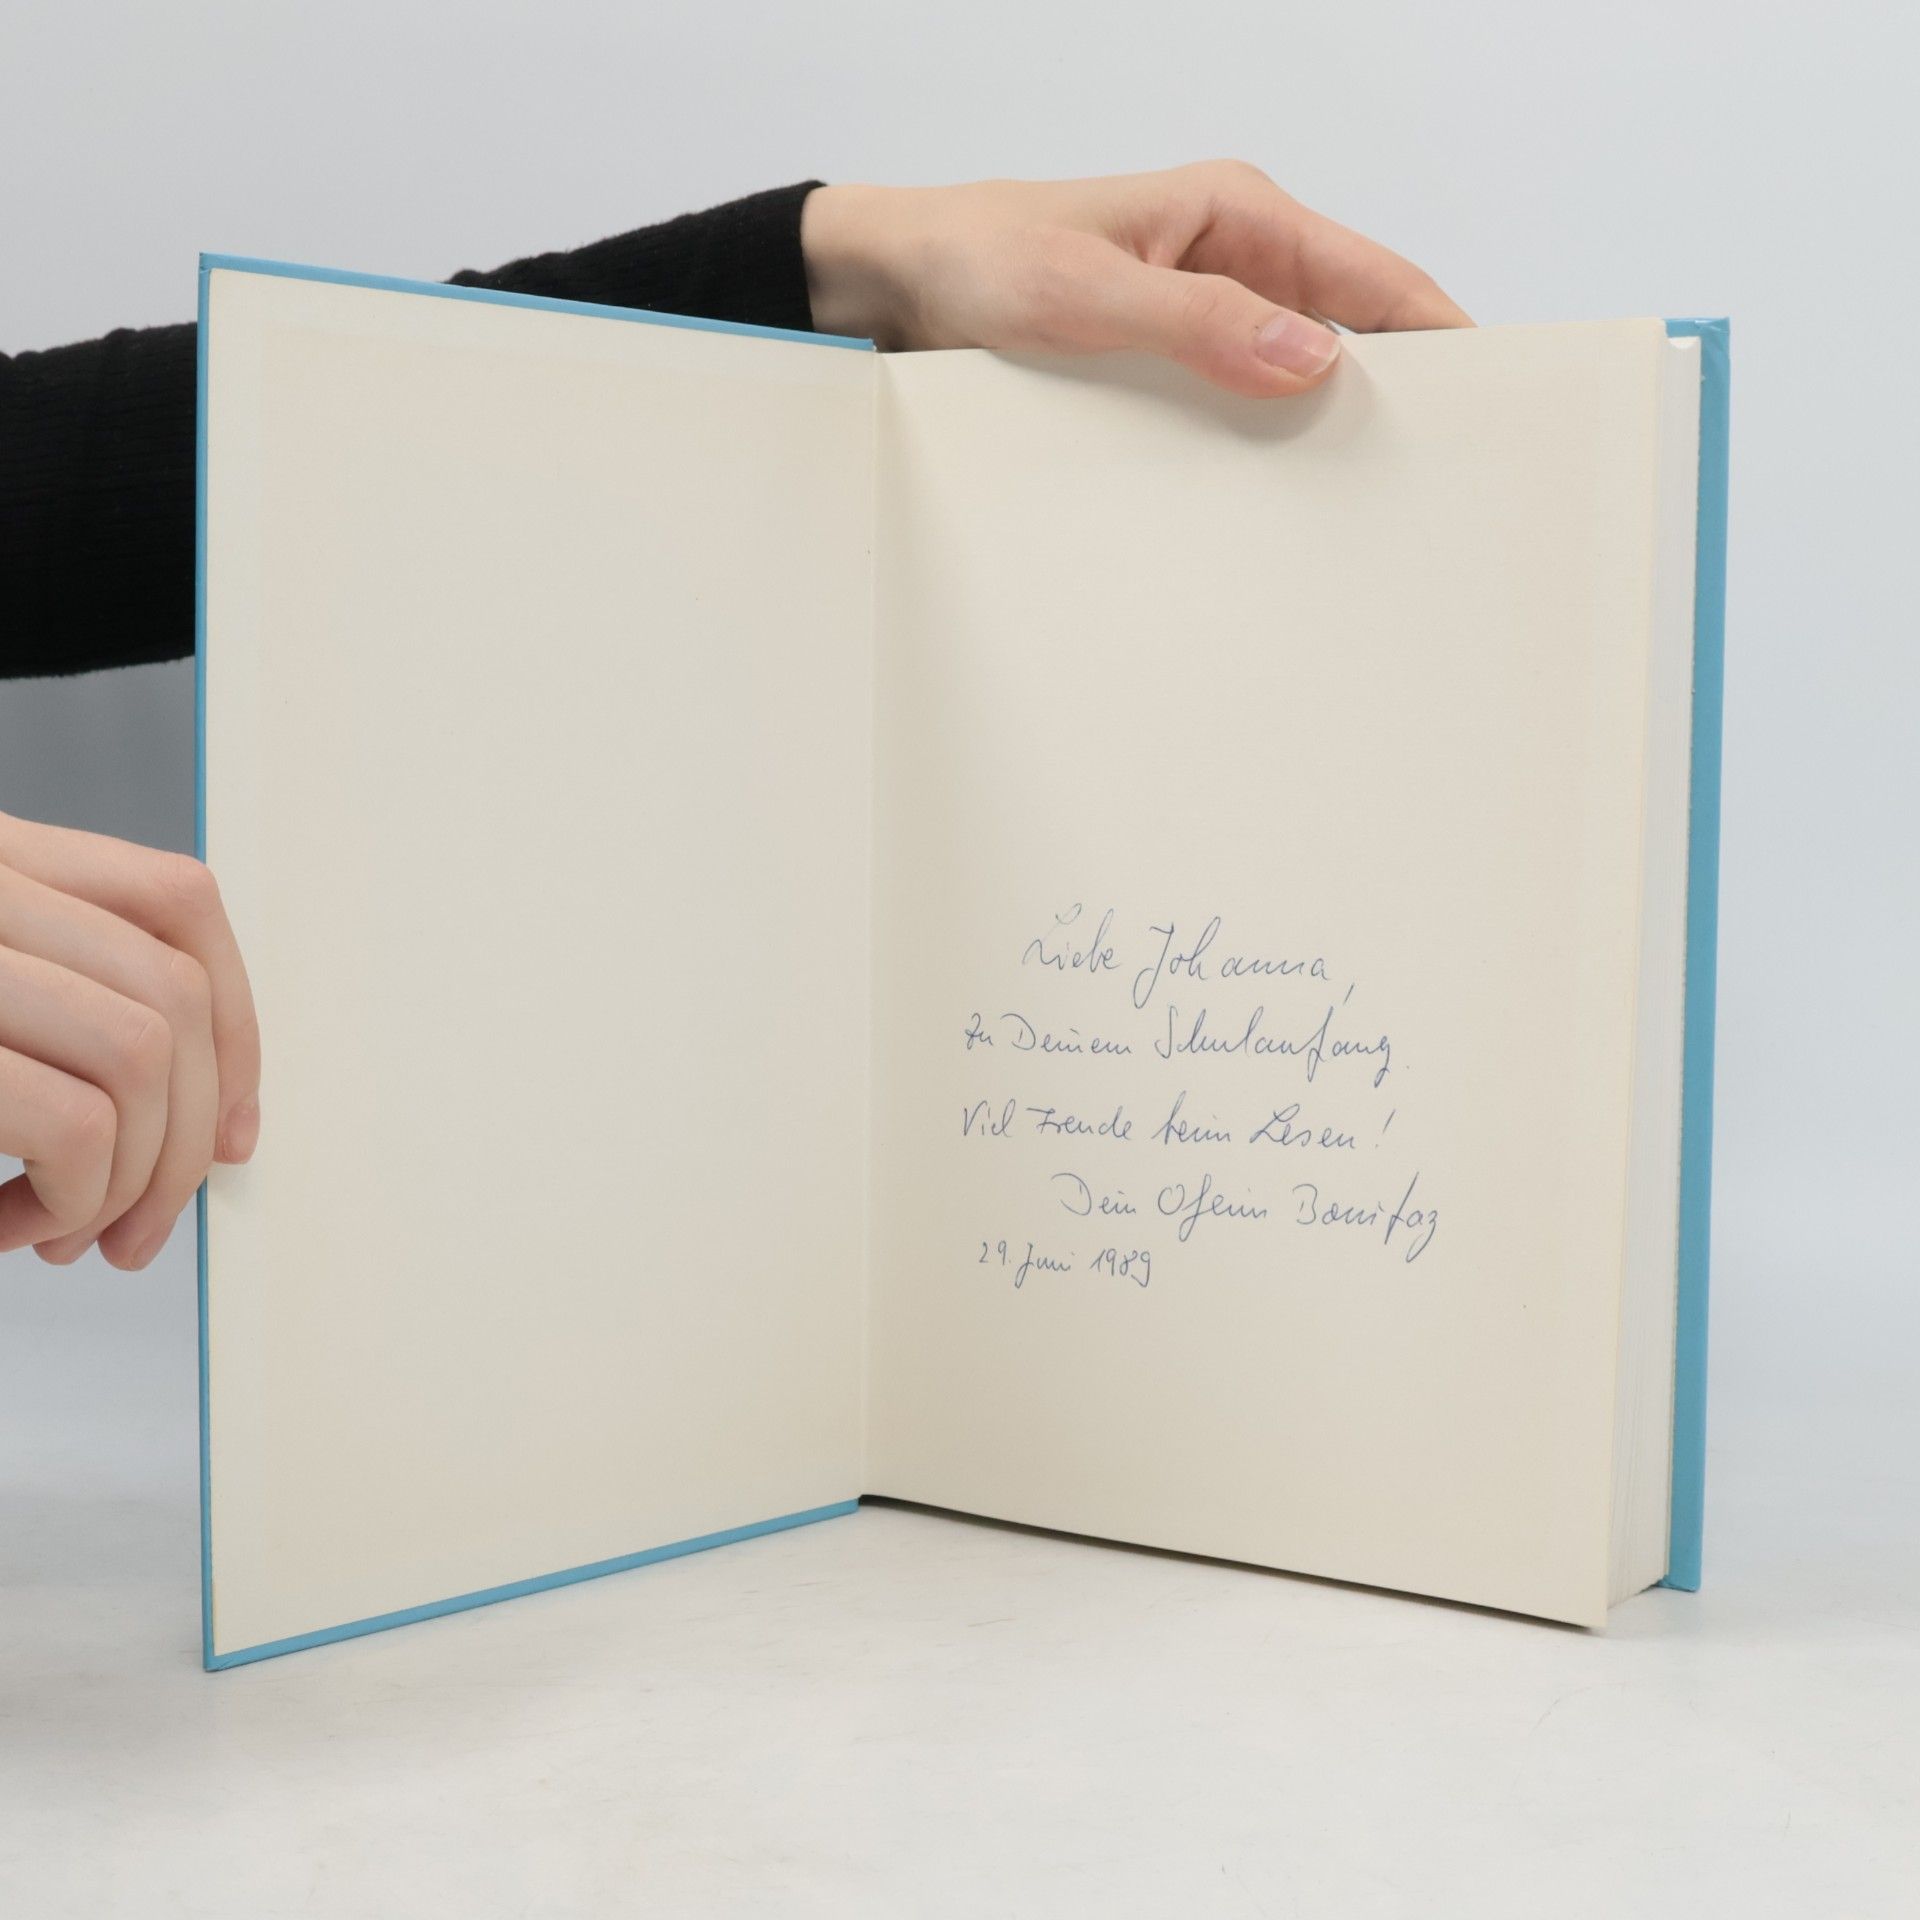 Liebe Johanna,
zu Deinem Schulanfang.
Viel Freude beim Lesen!
Dein Oheim Bonifaz
29. Juni 1989